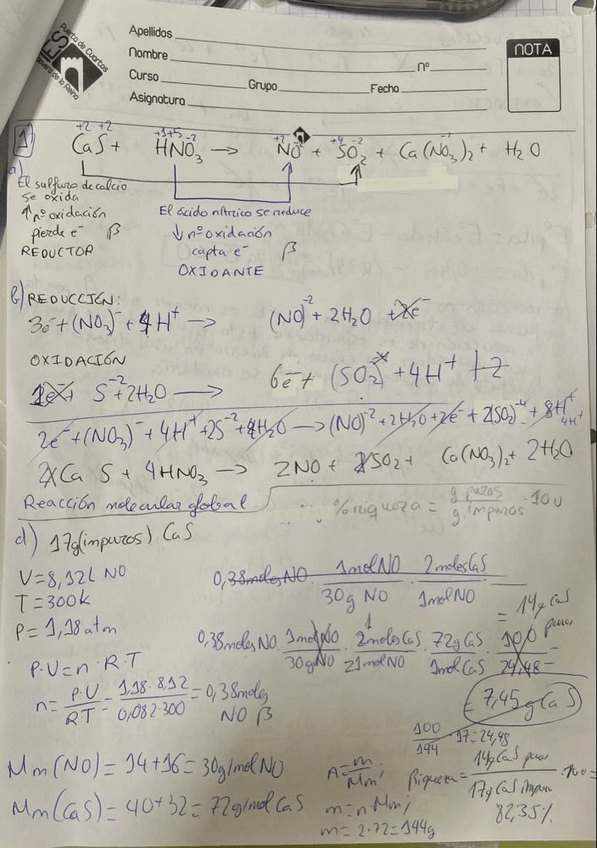 Puerta de Cuartos
IES
Talavera de la Reina
Apellidos
Nombre
nº
Curso Grupo Fecha
Asignatura
NOTA
+2 -2 +1+5 -2 +2 -2 +4 -2
1 CaS + HNO3 → NO + SO2 + Ca(NO3)2 + H2O
a)
El sulfuro de calcio
se oxida
↑ nº oxidación
pierde e⁻ β
REDUCTOR
El ácido nítrico se reduce
↓ nº oxidación
capta e⁻ β
OXIDANTE
b) REDUCCIÓN:
3e⁻ + (NO3)⁻ + 4H⁺ → (NO)⁻² + 2H2O
OXIDACIÓN
S⁻² + 2H2O → 6e⁻ + (SO2) + 4H⁺
2e⁻ + (NO3)⁻ + 4H⁺ + 2S⁻² + 4H2O → (NO)⁻² + 2H2O + 2e⁻ + 2(SO2)⁻⁴ + 8H⁺ 4H⁺
CaS + 4HNO3 → 2NO + SO2 + Ca(NO3)2 + 2H2O
Reacción molecular global
% riqueza = g puros / g impuros · 100
d) 17g (impuros) CaS
V = 8,12L NO
T = 300k
P = 1,18 atm
0,38moles NO · 1mol NO / 30g NO · 2moles CaS / 1mol NO
= 14g CaS puros
0,38moles NO · 1mol NO / 30g NO · 2moles CaS / 1mol NO · 72g CaS / 1mol CaS · 100 / 24,48 =
= 7,45g CaS
P·V = n·R·T
n = P·V / RT = 1,18·8,12 / 0,082·300 = 0,38moles NO β
100 / 144 · 17 = 24,48
Mm (NO) = 14+16 = 30g/mol NO
Mm (CaS) = 40+32 = 72g/mol CaS
n = m / Mm;
m = n·Mm;
m = 2·72 = 144g
Riqueza = 14g CaS puros / 17g CaS impuros · 100 =
82,35%